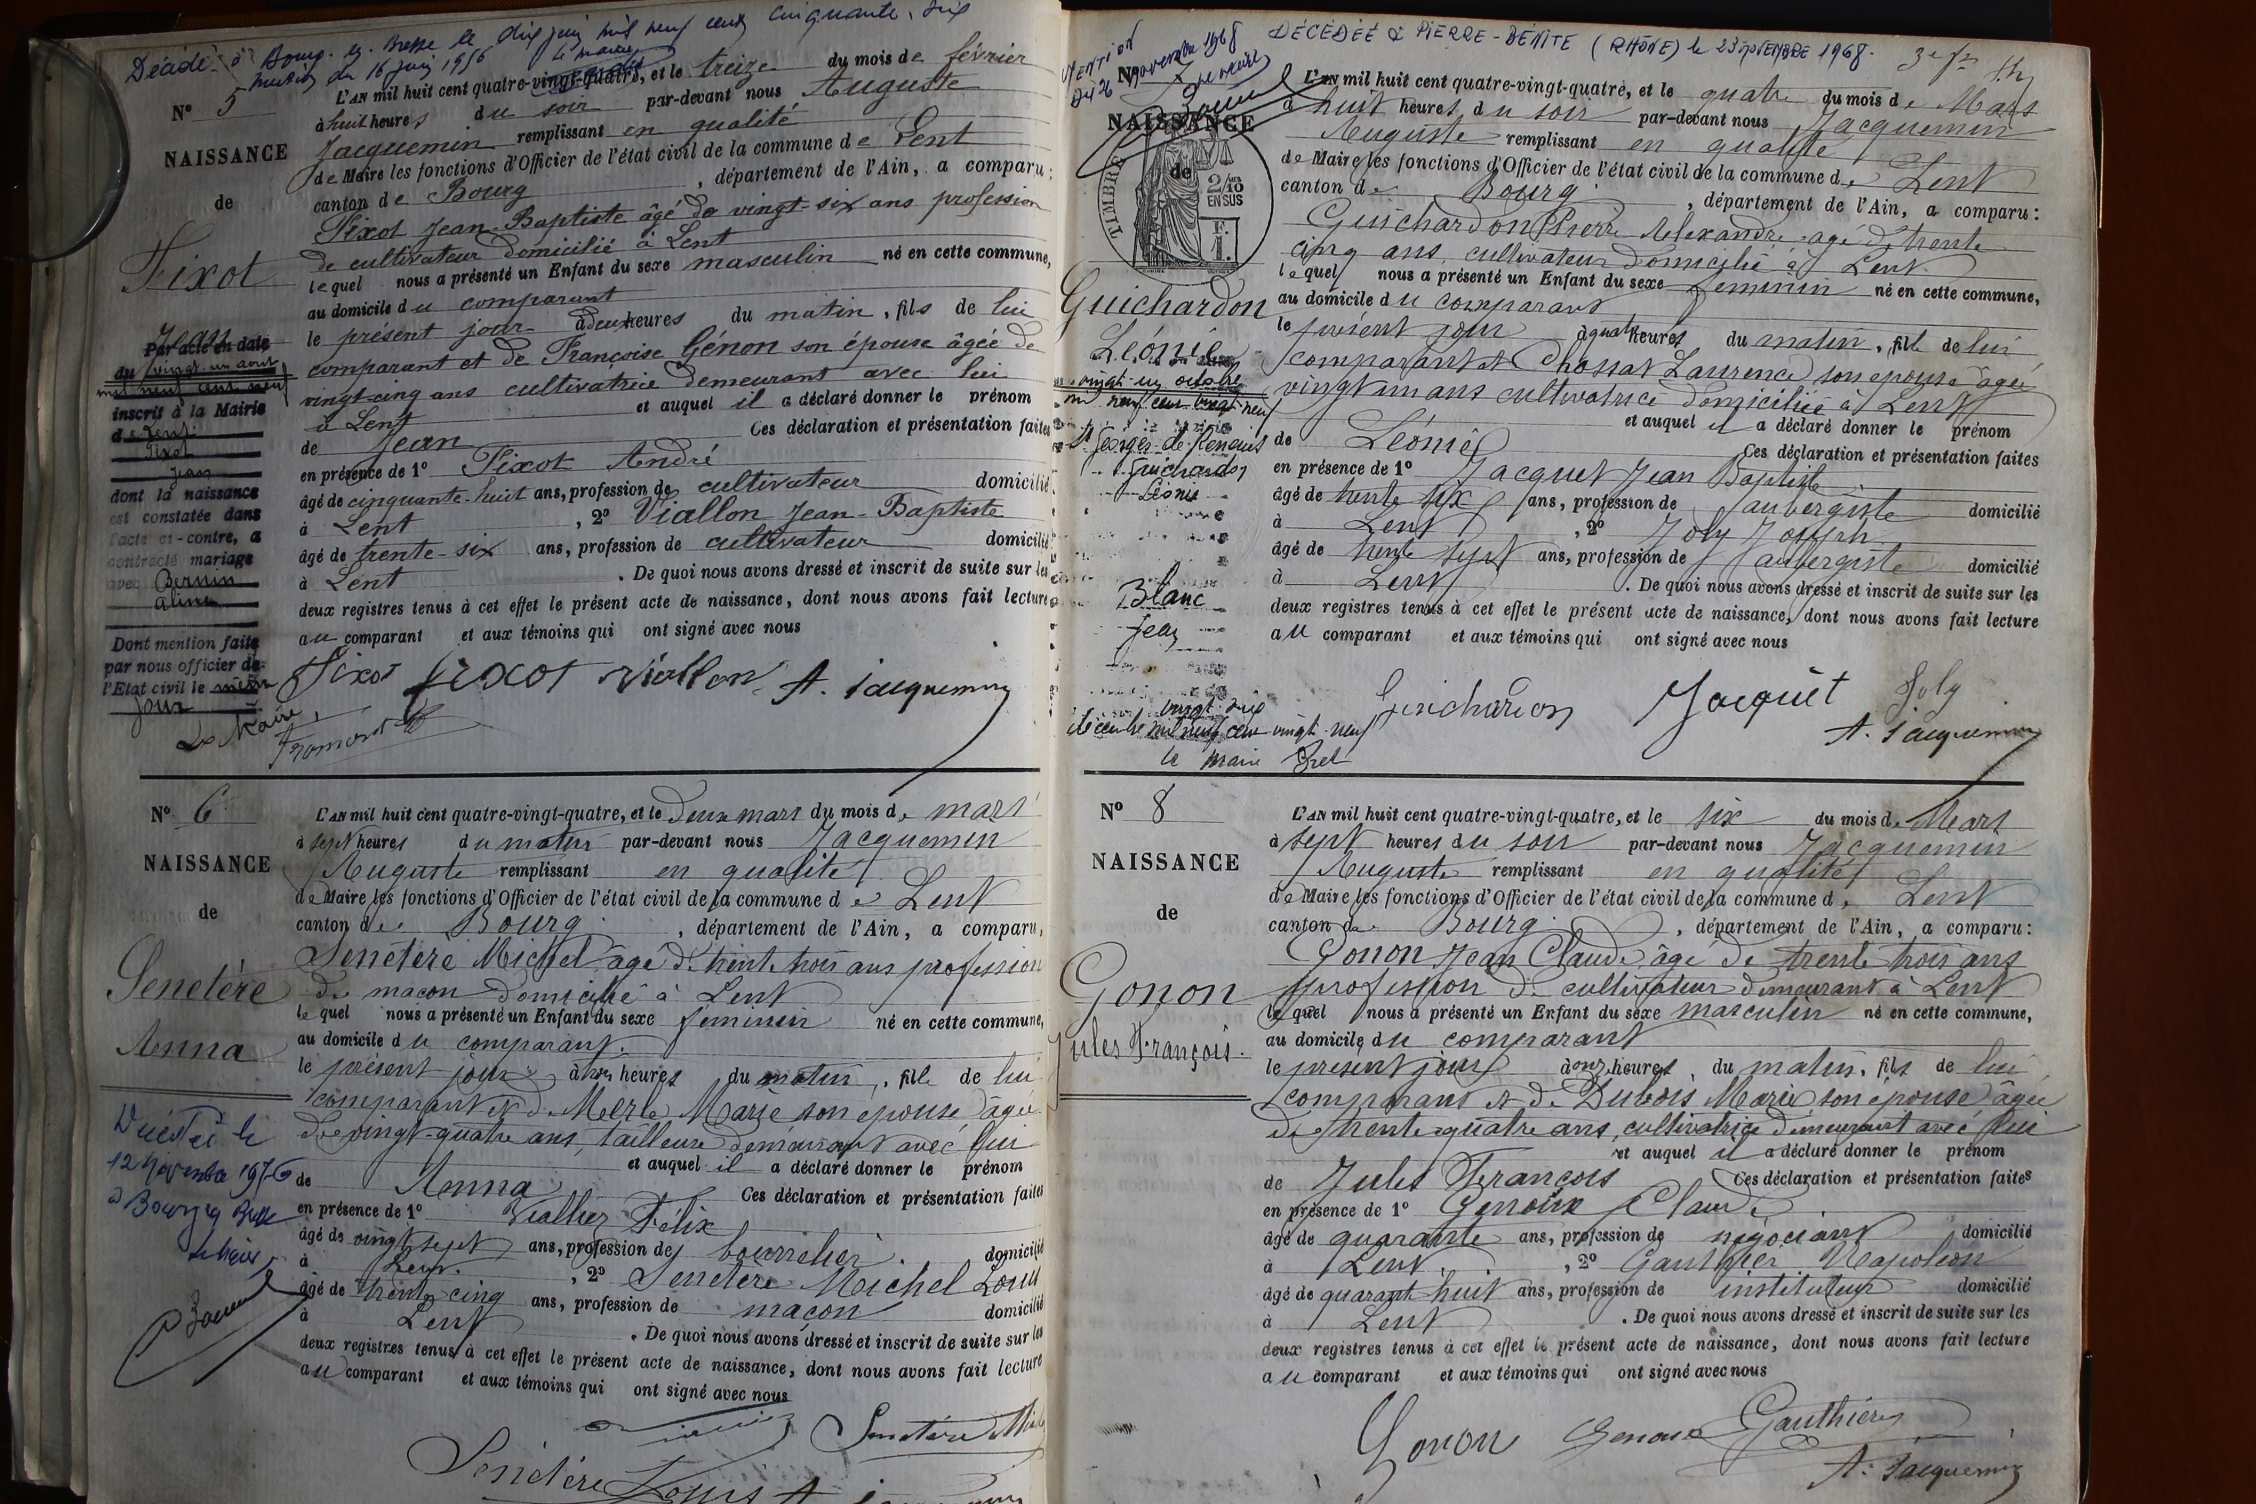 Décédé à Bourg-en-Bresse le dix juin mil neuf cent cinquante six
mention du 16 juin 1956 Le maire
N° 5
NAISSANCE
de
Fixot
Jean
L'AN mil huit cent quatre-vingt-quatre, et le treize du mois de février
à huit heures du soir par-devant nous Auguste
Jacquemin remplissant en qualité
de Maire les fonctions d'Officier de l'état civil de la commune de Lent
canton de Bourg, département de l'Ain, a comparu:
Fixot Jean-Baptiste âgé de vingt-six ans profession
de cultivateur domicilié à Lent
lequel nous a présenté un Enfant du sexe masculin né en cette commune,
au domicile du comparant
le présent jour à deux heures du matin, fils de lui
comparant et de Françoise Génon son épouse âgée de
vingt-cinq ans cultivatrice demeurant avec lui
à Lent et auquel il a déclaré donner le prénom
de Jean Ces déclaration et présentation faites
en présence de 1° Fixot André
âgé de cinquante-huit ans, profession de cultivateur domicilié
à Lent, 2° Viallon Jean-Baptiste
âgé de trente-six ans, profession de cultivateur domicilié
à Lent. De quoi nous avons dressé et inscrit de suite sur les
deux registres tenus à cet effet le présent acte de naissance, dont nous avons fait lecture
au comparant et aux témoins qui ont signé avec nous
Fixot fixot Viallon A. Jacquemin
Par acte en date
du vingt-un août
mil neuf cent neuf
inscrit à la Mairie
de Lent
Fixot
Jean
dont la naissance
est constatée dans
l'acte ci-contre, a
contracté mariage
avec Bernin
Aline
Dont mention faite
par nous officier de
l'Etat civil le même
jour
Le Maire,
N° 6
NAISSANCE
de
Senétère
Anna
L'AN mil huit cent quatre-vingt-quatre, et le deux mars du mois de mars
à sept heures du matin par-devant nous Jacquemin
Auguste remplissant en qualité
de Maire les fonctions d'Officier de l'état civil de la commune de Lent
canton de Bourg, département de l'Ain, a comparu,
Senétère Michel âgé de trente trois ans profession
de maçon domicilié à Lent
lequel nous a présenté un Enfant du sexe féminin né en cette commune,
au domicile du comparant.
le présent jour à heures du matin, fille de lui
comparant et de Merle Marie son épouse âgée
de vingt-quatre ans, tailleuse demeurant avec lui
et auquel il a déclaré donner le prénom
de Anna Ces déclaration et présentation faites
en présence de 1° Viallier Félix
âgé de vingt sept ans, profession de bourrelier domicilié
à Lent, 2° Senétère Michel Louis
âgé de trente cinq ans, profession de maçon domicilié
à Lent. De quoi nous avons dressé et inscrit de suite sur les
deux registres tenus à cet effet le présent acte de naissance, dont nous avons fait lecture
au comparant et aux témoins qui ont signé avec nous
Senétère
Senétère Louis A.
Décédée le
12 Novembre 1976
à Bourg en Bresse
le Maire
DÉCÉDÉE à PIERRE-BÉNITE (RHÔNE) le 23 NOVEMBRE 1968.
Mention
du 26 novembre 1968
Le maire
N°
NAISSANCE
de
TIMBRE
2/10
EN SUS
F.
1.
Guichardon
Léonie
L'AN mil huit cent quatre-vingt-quatre, et le quatre du mois de Mars
à huit heures du soir par-devant nous Jacquemin
Auguste remplissant en qualité
de Maire les fonctions d'Officier de l'état civil de la commune de Lent
canton de Bourg, département de l'Ain, a comparu:
Guichardon Pierre Alexandre agé de trente
cinq ans cultivateur domicilié à Lent
lequel nous a présenté un Enfant du sexe féminin né en cette commune,
au domicile du comparant
le présent jour à quatre heures du matin, fille de lui
comparant et Chossat Laurence son épouse âgée
vingt un ans cultivatrice domiciliée à Lent
et auquel il a déclaré donner le prénom
de Léonie Ces déclaration et présentation faites
en présence de 1° Jacquet Jean Baptiste
âgé de trente six ans, profession de aubergiste domicilié
à Lent, 2° Joly Joseph
âgé de trente sept ans, profession de aubergiste domicilié
à Lent. De quoi nous avons dressé et inscrit de suite sur les
deux registres tenus à cet effet le présent acte de naissance, dont nous avons fait lecture
au comparant et aux témoins qui ont signé avec nous
Guichardon Jacquet Joly
A. Jacquemin
vingt-un octobre
mil neuf cent vingt-neuf
St Georges-de-Reneins
Guichardon
Léonie
Blanc
Jean
vingt-six
décembre mil neuf cent vingt-neuf
le maire
N° 8
NAISSANCE
de
Gonon
Jules François.
L'AN mil huit cent quatre-vingt-quatre, et le six du mois de Mars
à sept heures du soir par-devant nous Jacquemin
Auguste remplissant en qualité
de Maire les fonctions d'Officier de l'état civil de la commune de Lent
canton de Bourg, département de l'Ain, a comparu:
Gonon Jean Claude âgé de trente trois ans
profession de cultivateur demeurant à Lent
lequel nous a présenté un Enfant du sexe masculin né en cette commune,
au domicile du comparant
le présent jour à onze heures du matin, fils de lui
comparant et de Dubois Marie son épouse âgée
de trente quatre ans, cultivatrice demeurant avec lui
et auquel il a déclaré donner le prénom
de Jules François Ces déclaration et présentation faites
en présence de 1° Genoux Claude
âgé de quarante ans, profession de négociant domicilié
à Lent, 2° Gauthier Napoléon
âgé de quarante huit ans, profession de instituteur domicilié
à Lent. De quoi nous avons dressé et inscrit de suite sur les
deux registres tenus à cet effet le présent acte de naissance, dont nous avons fait lecture
au comparant et aux témoins qui ont signé avec nous
Gonon Genoux Gauthier
A. Jacquemin